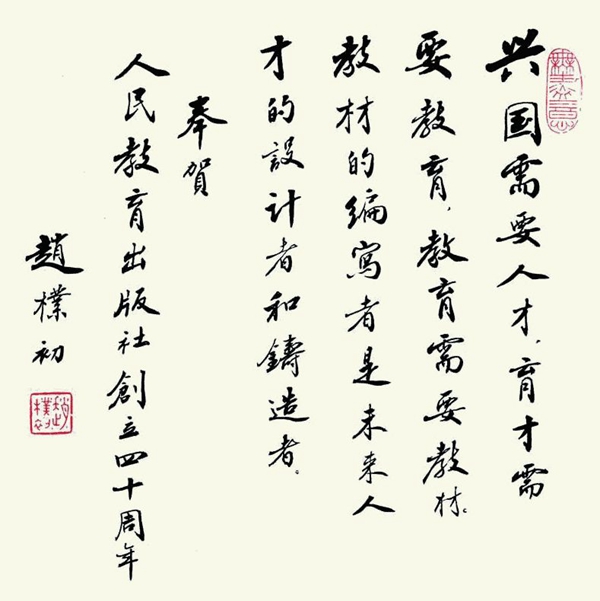 兴国需要人才，育才需
要教育，教育需要教材。
教材的编寫者是未来人
才的設计者和鑄造者。
奉賀
人民教育出版社創立四十周年
趙樸初
趙樸初